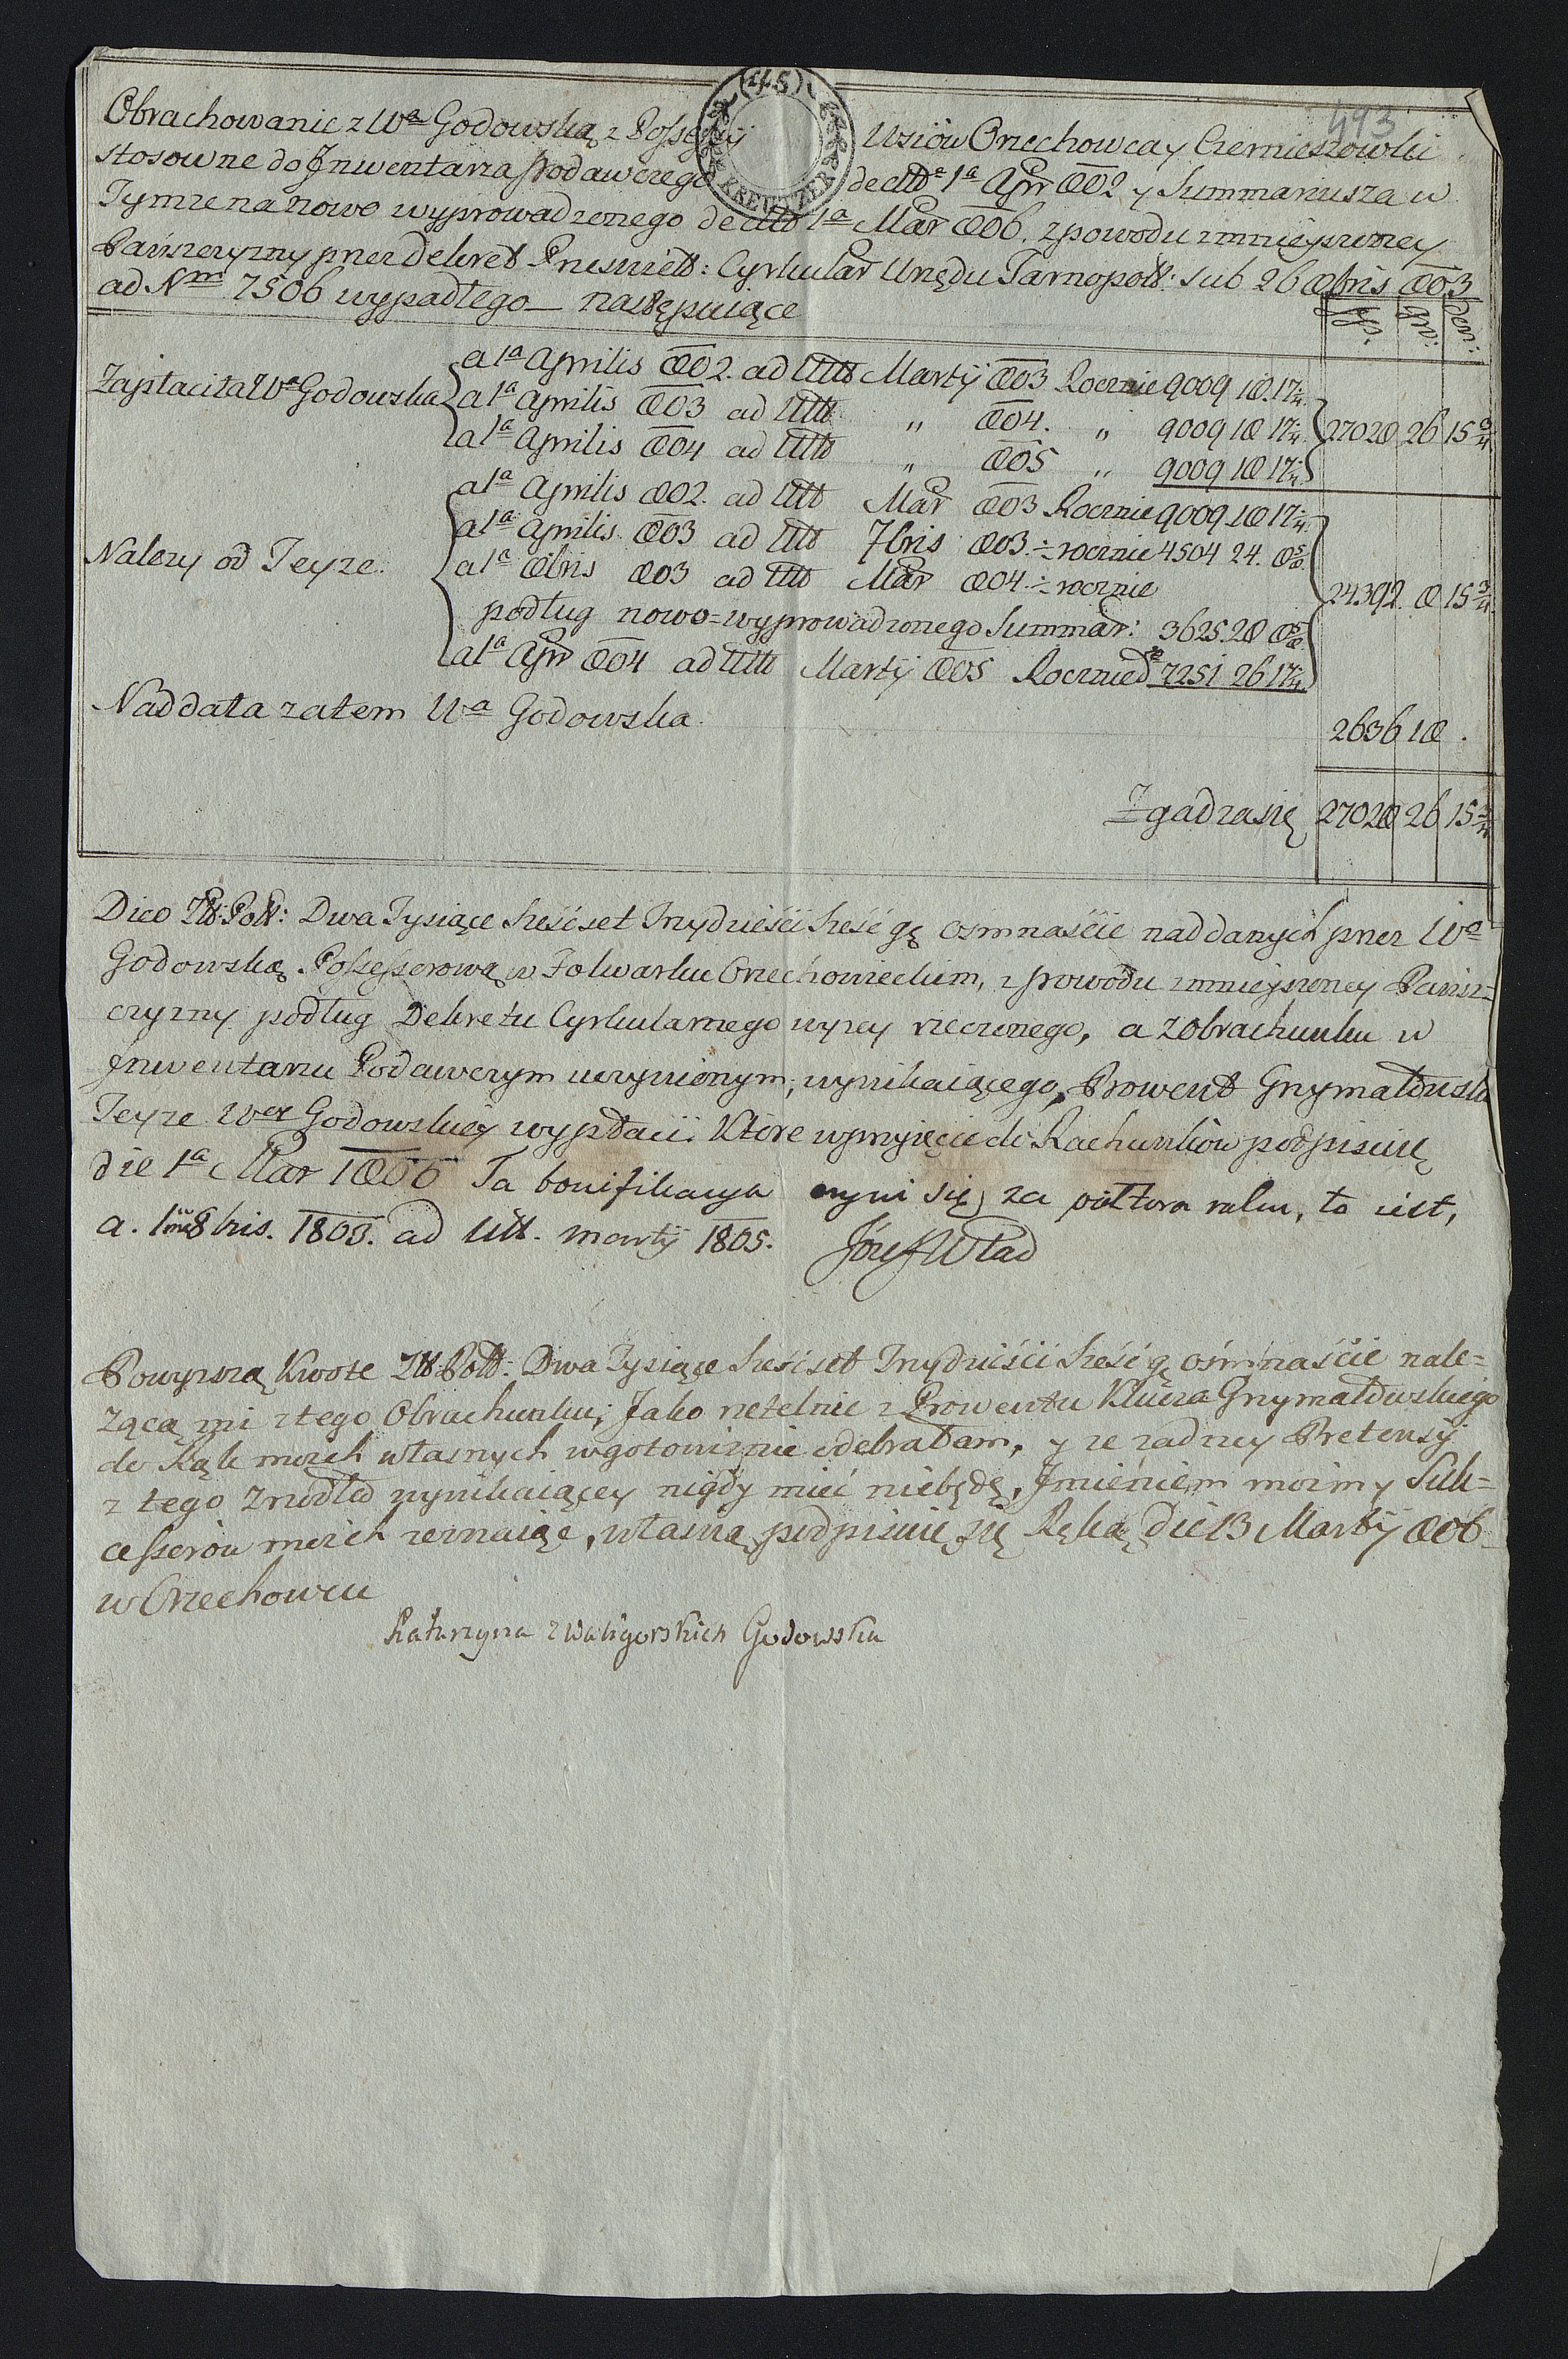 493
(45) KREUTZER
Obrachowanie z Wą Godowską z Possessyi Wsiów Orzechowca y Czerniszowki
stosowne do Inwentarza podawczego de dto 1ª Apr 802 y Summariusza w
Tymze na nowo wyprowadzonego de dto 1ª Mar 806. z powodu zmnieyszoney
Pańszczyzny przez Dekret Przeświett: Cyrkular Urzędu Tarnopoll: sub 26 8bris 803
ad Nrm 7506 wypadłego — następuiące
zp. gr: den:
Zapłaciła Wª Godowska a 1ª Aprilis 802. ad Ult Martij 803 Rocznie 9009 18. 17 1/4
a 1ª Aprilis 803 ad Ult " 804. " 9009 18 17 1/4 27028 26 15 3/4
a 1ª Aprilis 804 ad Ult " 805 " 9009 18 17 1/4
a 1ª Aprilis 802. ad Ult Mar 803 Rocznie 9009 18 17 1/4
a 1ª Aprilis 803 ad Ult 7bris 803 ÷ rocznie 4504 24. 8 5/8
Nalezy od Teyze. a 1ª 8bris 803 ad Ult Mar 804 ÷ rocznie 24392. 8 15 3/4
podług nowo=wyprowadzonego Summar: 3625. 28 8 5/8
a 1ª Apr 804 ad Ult Martij 805 Rocznie 7251 26 17 1/4
Naddała zatem Wª Godowska. 2636 18 .
Zgadza się 27028 26 15 3/4
Dico Złt: Poll: Dwa Tysiące Sześćset Trzydzieści Sześć gę osmnaście naddanych przez Wą
Godowską Possessorową w Folwarku Orzechowieckim, z powodu zmnieyszoney Pańsz=
czyzny podług Dekretu Cyrkularnego wyzey rzeczonego, a z Obrachunku w
Inwentarzu Podawczym uczynionym, wynikaiącego, Prowent Grzymałowski
Teyze Wey Godowskiey wypłaci. Które wymyięcie do Rachunków podpisuię
die 1ª Mar 1806 Ta bonifikacya czyni się za półtora roku, to iest,
a. 1ma 8bris. 1803. ad Ult. martij 1805. Józef Wład
Powyzszą Kwotę Złt Poll: Dwa Tysiące Sześćset Trzydzieści Sześć gę ośmnaście nale=
zącą mi z tego Obrachunku, Jako rzetelnie z Prowentu Klucza Grzymałowskiego
do Rąk moich własnych w gotowiznie odebrałam, y ze zadney Pretensyi
z tego Zrzodła wynikaiącey nigdy mieć niebędę, Imieniem moim y Suk=
cessorów moich zeznaiąc, własną podpisuię się Ręką die 13 Martij 806
w Orzechowcu
Katarzyna z Waligorskich Godowska